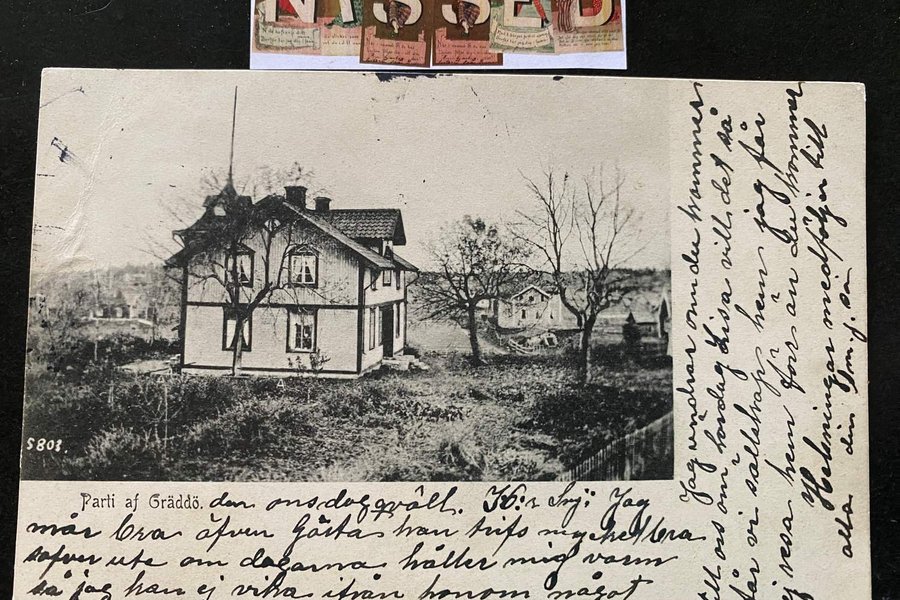 NISSED
5803.
Parti af Gräddö. den onsdagqväll. K:r Svj: Jag
mår bra äfven Gösta han trifs mycket bra
sofver ute om dagarna håller mig varm
så jag kan ej vika ifrån honom något
Jag undrar om du kommer
till oss om lördag Lisa vill det så
får vi sällskap hem jag får
ej resa hem förr än du kommer
Helsningar medföljer till
alla din